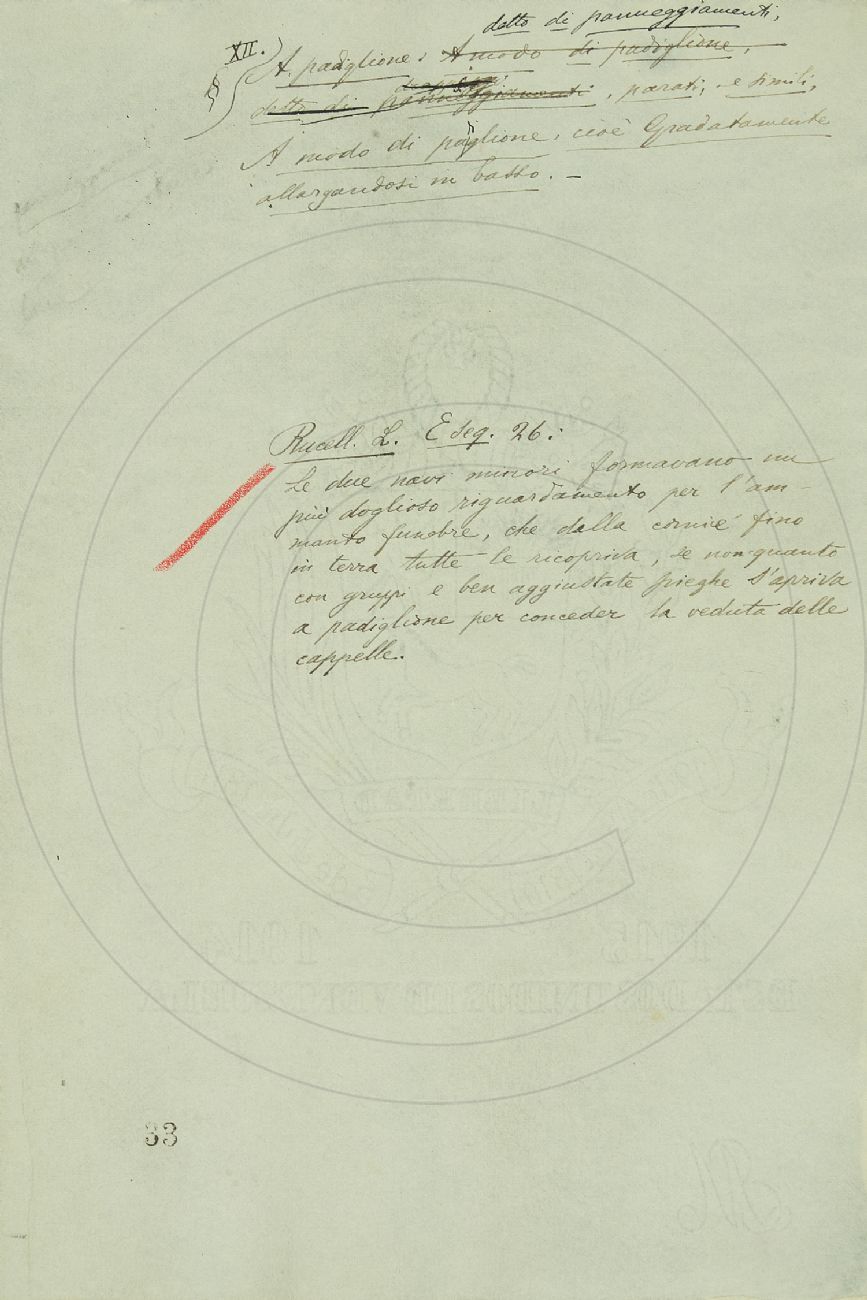 detto di panneggiamenti,
XII.
§ A padiglione: A modo di padiglione,
detto di panneggiamenti, parati, e simili,
A modo di paglione, cioè Gradatamente
allargandosi in basso. –
Rucell. L. Eseq. 26:
Le due navi minori formavano un
più doglioso riguardamento per l'am-
manto funebre, che dalla cornice fino
in terra tutte le ricopriva, se non quanto
con gruppi e ben aggiustate pieghe s'apriva
a padiglione per conceder la veduta delle
cappelle.
33